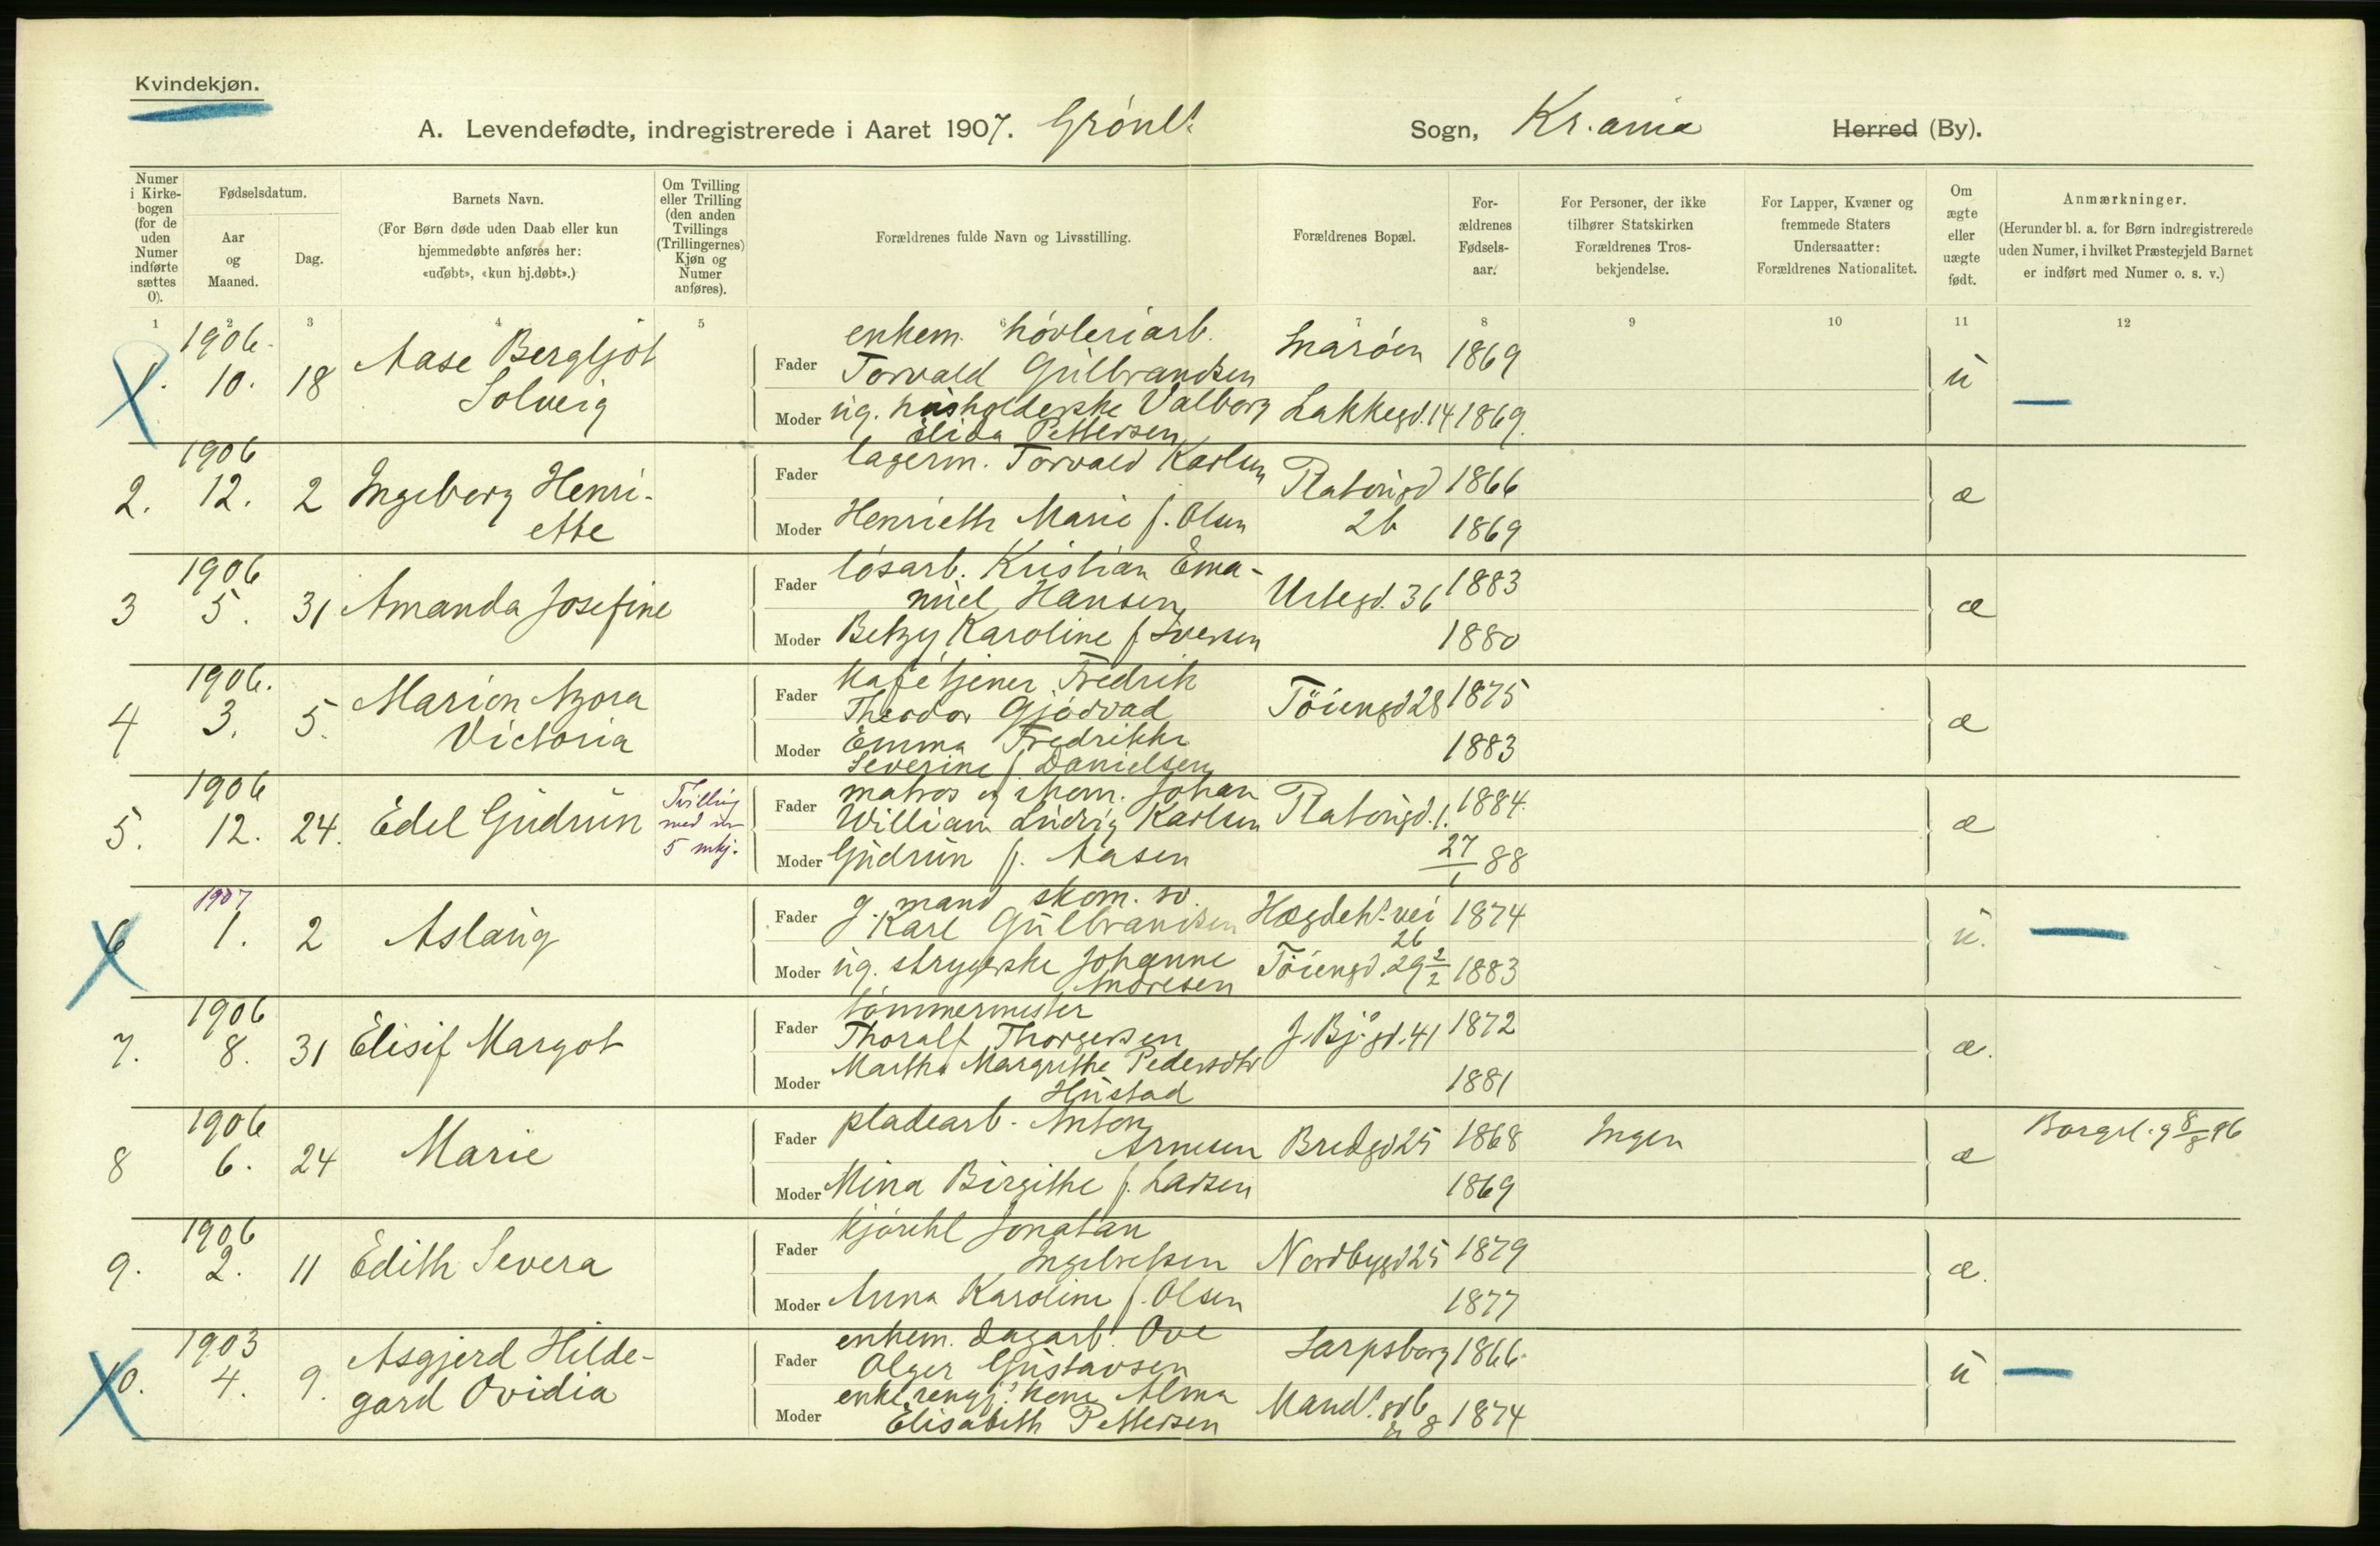 Kvindekjøn.
A. Levendefødte, indregistrerede i Aaret 1907. Grønl. Sogn, Kr.ania Herred (By).
Numer i Kirke-bogen (for de uden Numer indførte sættes 0).
Fødselsdatum.
Aar og Maaned.
Dag.
Barnets Navn.
(For Børn døde uden Daab eller kun hjemmedøbte anføres her: «udøbt», «kun hj.døbt».)
Om Tvilling eller Trilling (den anden Tvillings (Trillingernes) Kjøn og Numer anføres).
Forældrenes fulde Navn og Livsstilling.
Forældrenes Bopæl.
For-ældrenes Fødsels-aar.
For Personer, der ikke tilhører Statskirken Forældrenes Tros-bekjendelse.
For Lapper, Kvæner og fremmede Staters Undersaatter: Forældrenes Nationalitet.
Om ægte eller uægte født.
Anmærkninger.
(Herunder bl. a. for Børn indregistrerede uden Numer, i hvilket Præstegjeld Barnet er indført med Numer o. s. v.)
1 2 3 4 5 6 7 8 9 10 11 12
1. 1906. 10. 18 Aase Bergljot Solveig
Fader enkem. høvleriarb. Torvald Gulbrandsen Snarøen 1869
Moder ug. husholderske Valborg Elida Pettersen Lakkegd. 14 1869.
u —
2. 1906 12. 2 Ingeborg Henri-ette
Fader lagerm. Torvald Karlsen Platousgd 2b 1866
Moder Henriette Marie f. Olsen 1869
æ
3 1906 5. 31 Amanda Josefine
Fader løsarb. Kristian Ema-nuel Hansen Urtegd. 36 1883
Moder Betzy Karoline f. Iversen 1880
æ
4 1906. 3. 5. Marion Azora Victoria
Fader Kafetjener Fredrik Theodor Gjødvad Tøiengd 28 1875
Moder Emma Fredrikke Severine f. Danielsen 1883
æ
5. 1906 12. 24. Edel Gudrun
Tvilling med nr 5 mkj.
Fader matros og skom. Johan William Ludvig Karlsen Platousgd. 1. 1884.
Moder Gudrun f. Aasen 27/1 88
æ
6 1907 1. 2 Aslaug
Fader g. mand skom. sv. Karl Gulbrandsen Hægdeh. vei 26 1874
Moder ug. strygerske Johanne Andresen Tøiengd. 29 2/2 1883
u. —
7. 1906 8. 31 Elisif Margot
Fader tømmermester Thoralf Thorgersen J. Bj. gd. 41 1872
Moder Martha Margrethe Pedersdtr Hustad 1881
æ.
8 1906 6. 24 Marie
Fader pladearb. Anton Arnesen Bredgd 25 1868 Ingen
Moder Mina Birgithe f. Larsen 1869
æ Borgerl. g 8/8 96
9. 1906 2. 11 Edith Severa
Fader kjørekl Jonatan Ingebretsen Nordbygd 25 1879
Moder Anna Karoline f. Olsen 1877
æ.
10. 1903 4. 9. Asgjerd Hilde-gard Ovidia
Fader enkem. dagarb. Ove Olger Gustavsen Sarpsborg 1866.
Moder enke, rengj. kone Alma Elisabeth Pettersen Mand. gd 6 & 8 1874
u —